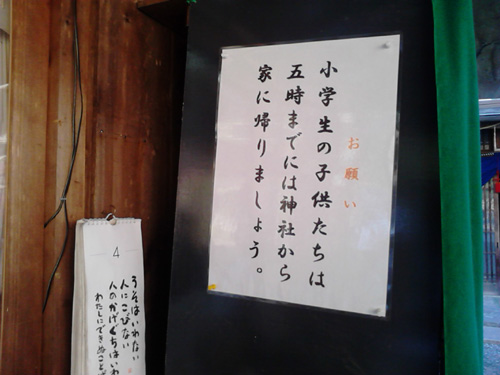 お願い
小学生の子供たちは
五時までには神社から
家に帰りましょう。
4
うそはいわない
人にこびない
人のかげぐちはいわ
わたしにできぬことば